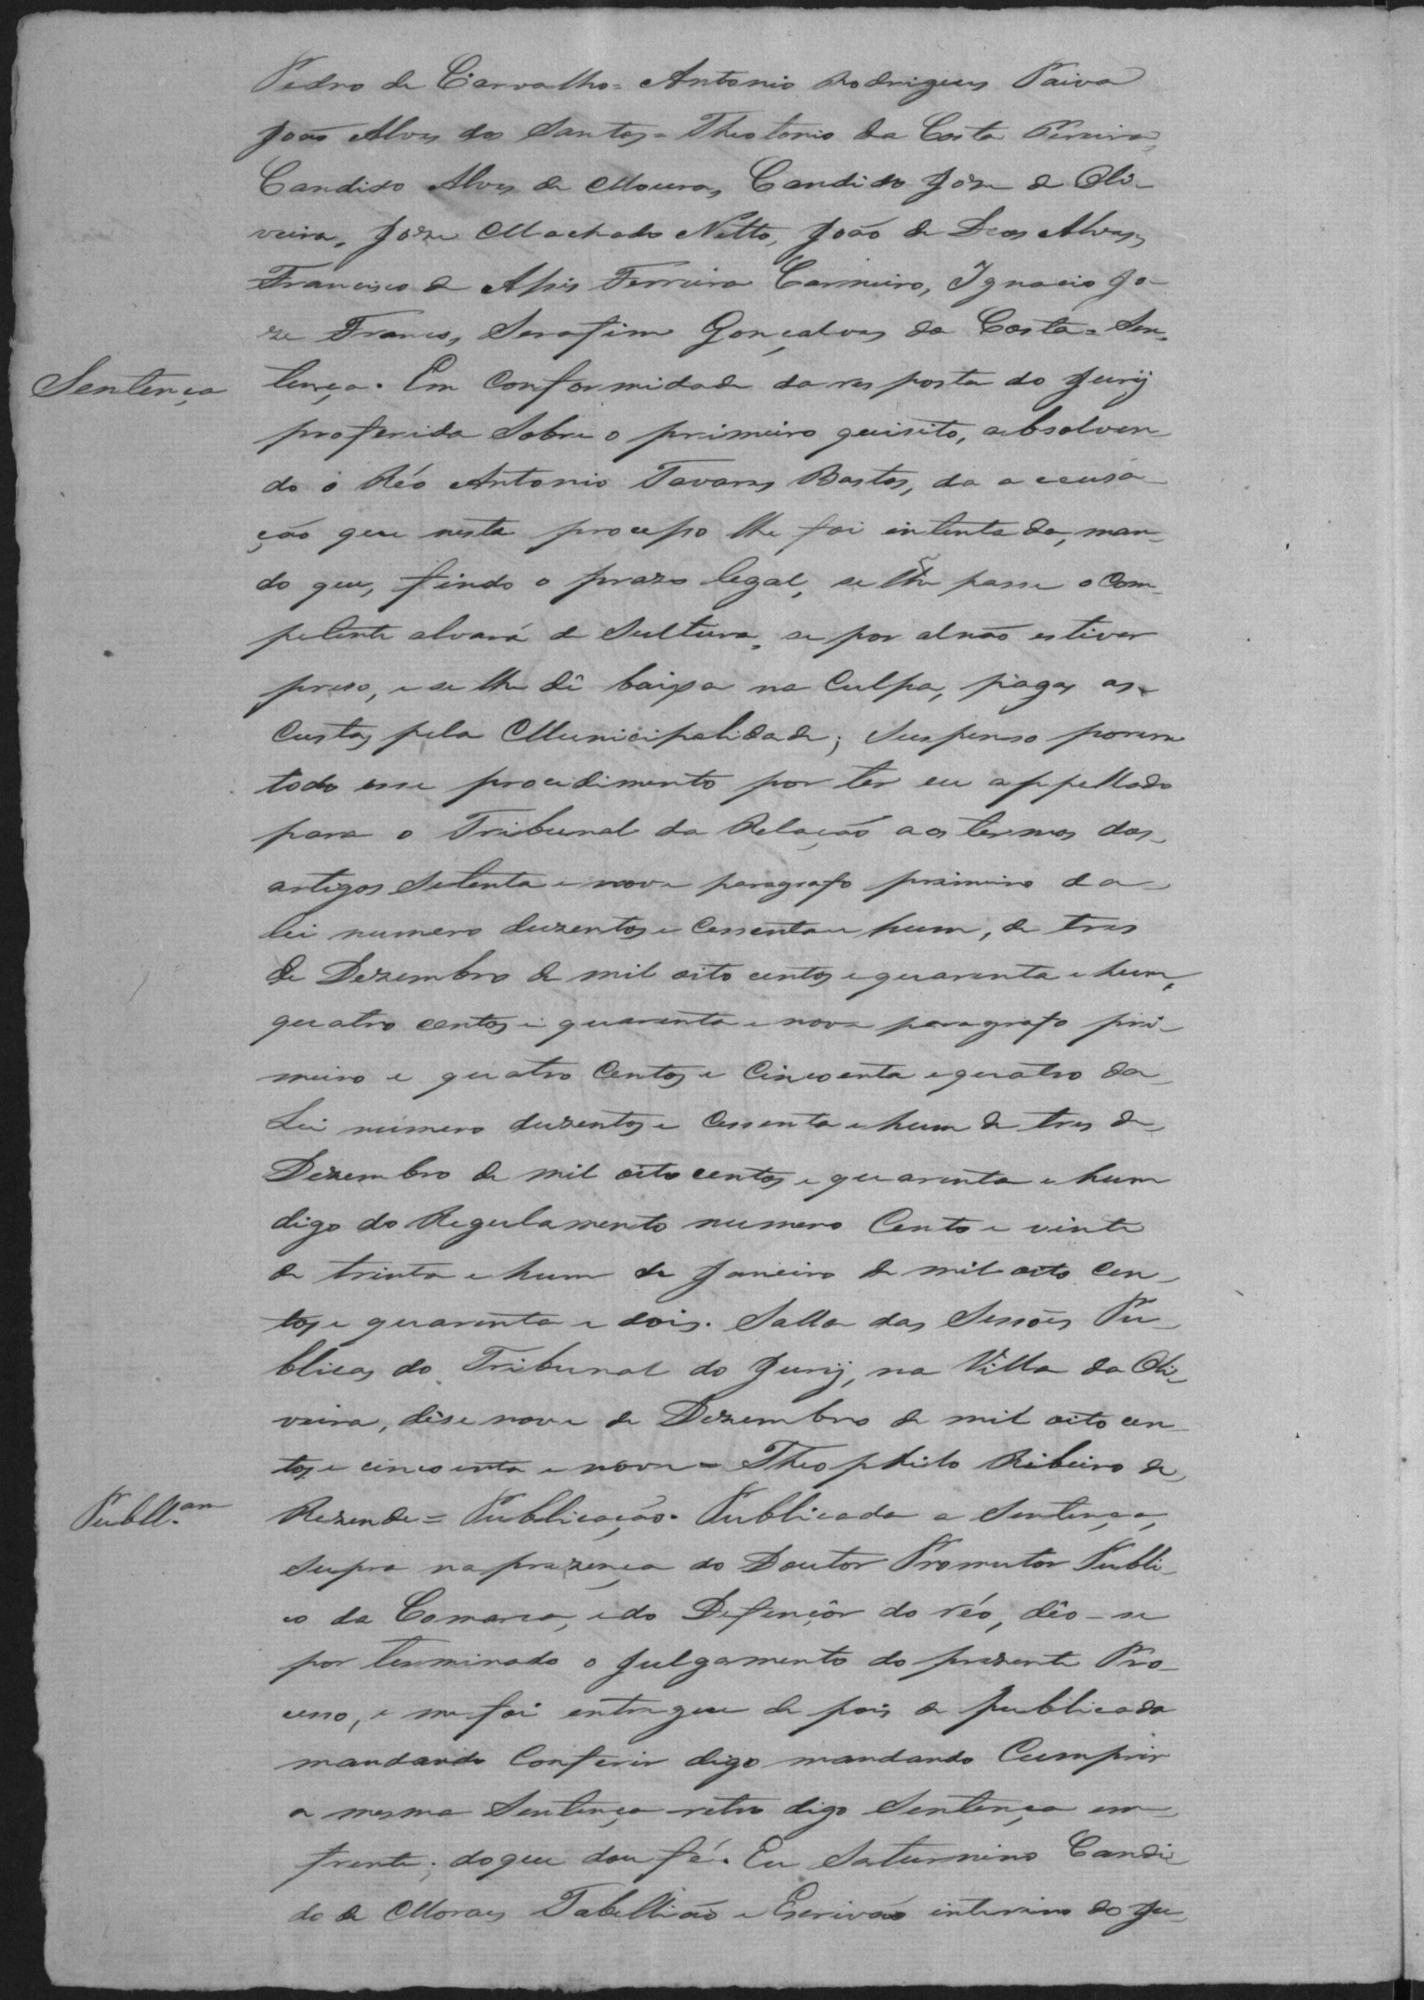 Pedro de Carvalho = Antonio Rodrigues Paiva
João Alves dos Santos = Theotonio da Costa Pereira,
Candido Alves de Moura, Candido Joze de Oli-
veira, Joze Machado Netto, João de Deos Alves,
Francisco de Assis Ferreira Carneiro, Ignacio Jo-
ze Franco, Serafim Gonçalves da Costa = Sen-
Sentença
tença. Em conformidade da resposta do Jury
proferida sobre o primeiro quisito, absolven-
do o Réo Antonio Tavares Bastos, da accusa-
ção que nesta processo lhe foi intentada, man-
do que, findo o prazo legal, se lhe passe o com-
petente alvará de Sultura, se por al não estiver
preso, e se lhe dê baixa na culpa, pagas as
custas pela Municipalidade; suspenso porem
todo esse procedimento por ter eu appellado
para o Tribunal da Relação aos termos dos
artigos setenta e nove paragrafo primeiro da
lei numero duzentos e cessenta e hum, de tres
de Dezembro de mil oito centos e quarenta e hum,
quatro centos e quarenta e nove paragrafo pri-
meiro e quatro centos e cincoenta e quatro da
Lei numero duzentos e cessenta e hum de tres de
Dezembro de mil oito centos e quarenta e hum
digo do Regulamento numero cento e vinte
de trinta e hum de Janeiro de mil oito cen-
tos e quarenta e dois. Salla das Sessões Pu-
blicas do Tribunal do Jury, na Villa da Oli-
veira, dêsenove de Dezembro de mil oito cen-
tos e cincoenta e nove = Theophilo Ribeiro de
Publl.am
Rezende = Publicação. Publicada a Sentença
supra na prezença do Doutor Promutor Publi-
co da Comarca, e do Defençôr do réo, dêo-se
por terminado o julgamento do prezente Pro-
cesso, e me foi entregue de pois de publicada
mandando conferir digo mandando cumprir
a mesma Sentença retro digo Sentença em
frente; do que dou fé. Eu Saturnino Candi-
do de Moraes Tabellião e Escrivão interino do Ju-